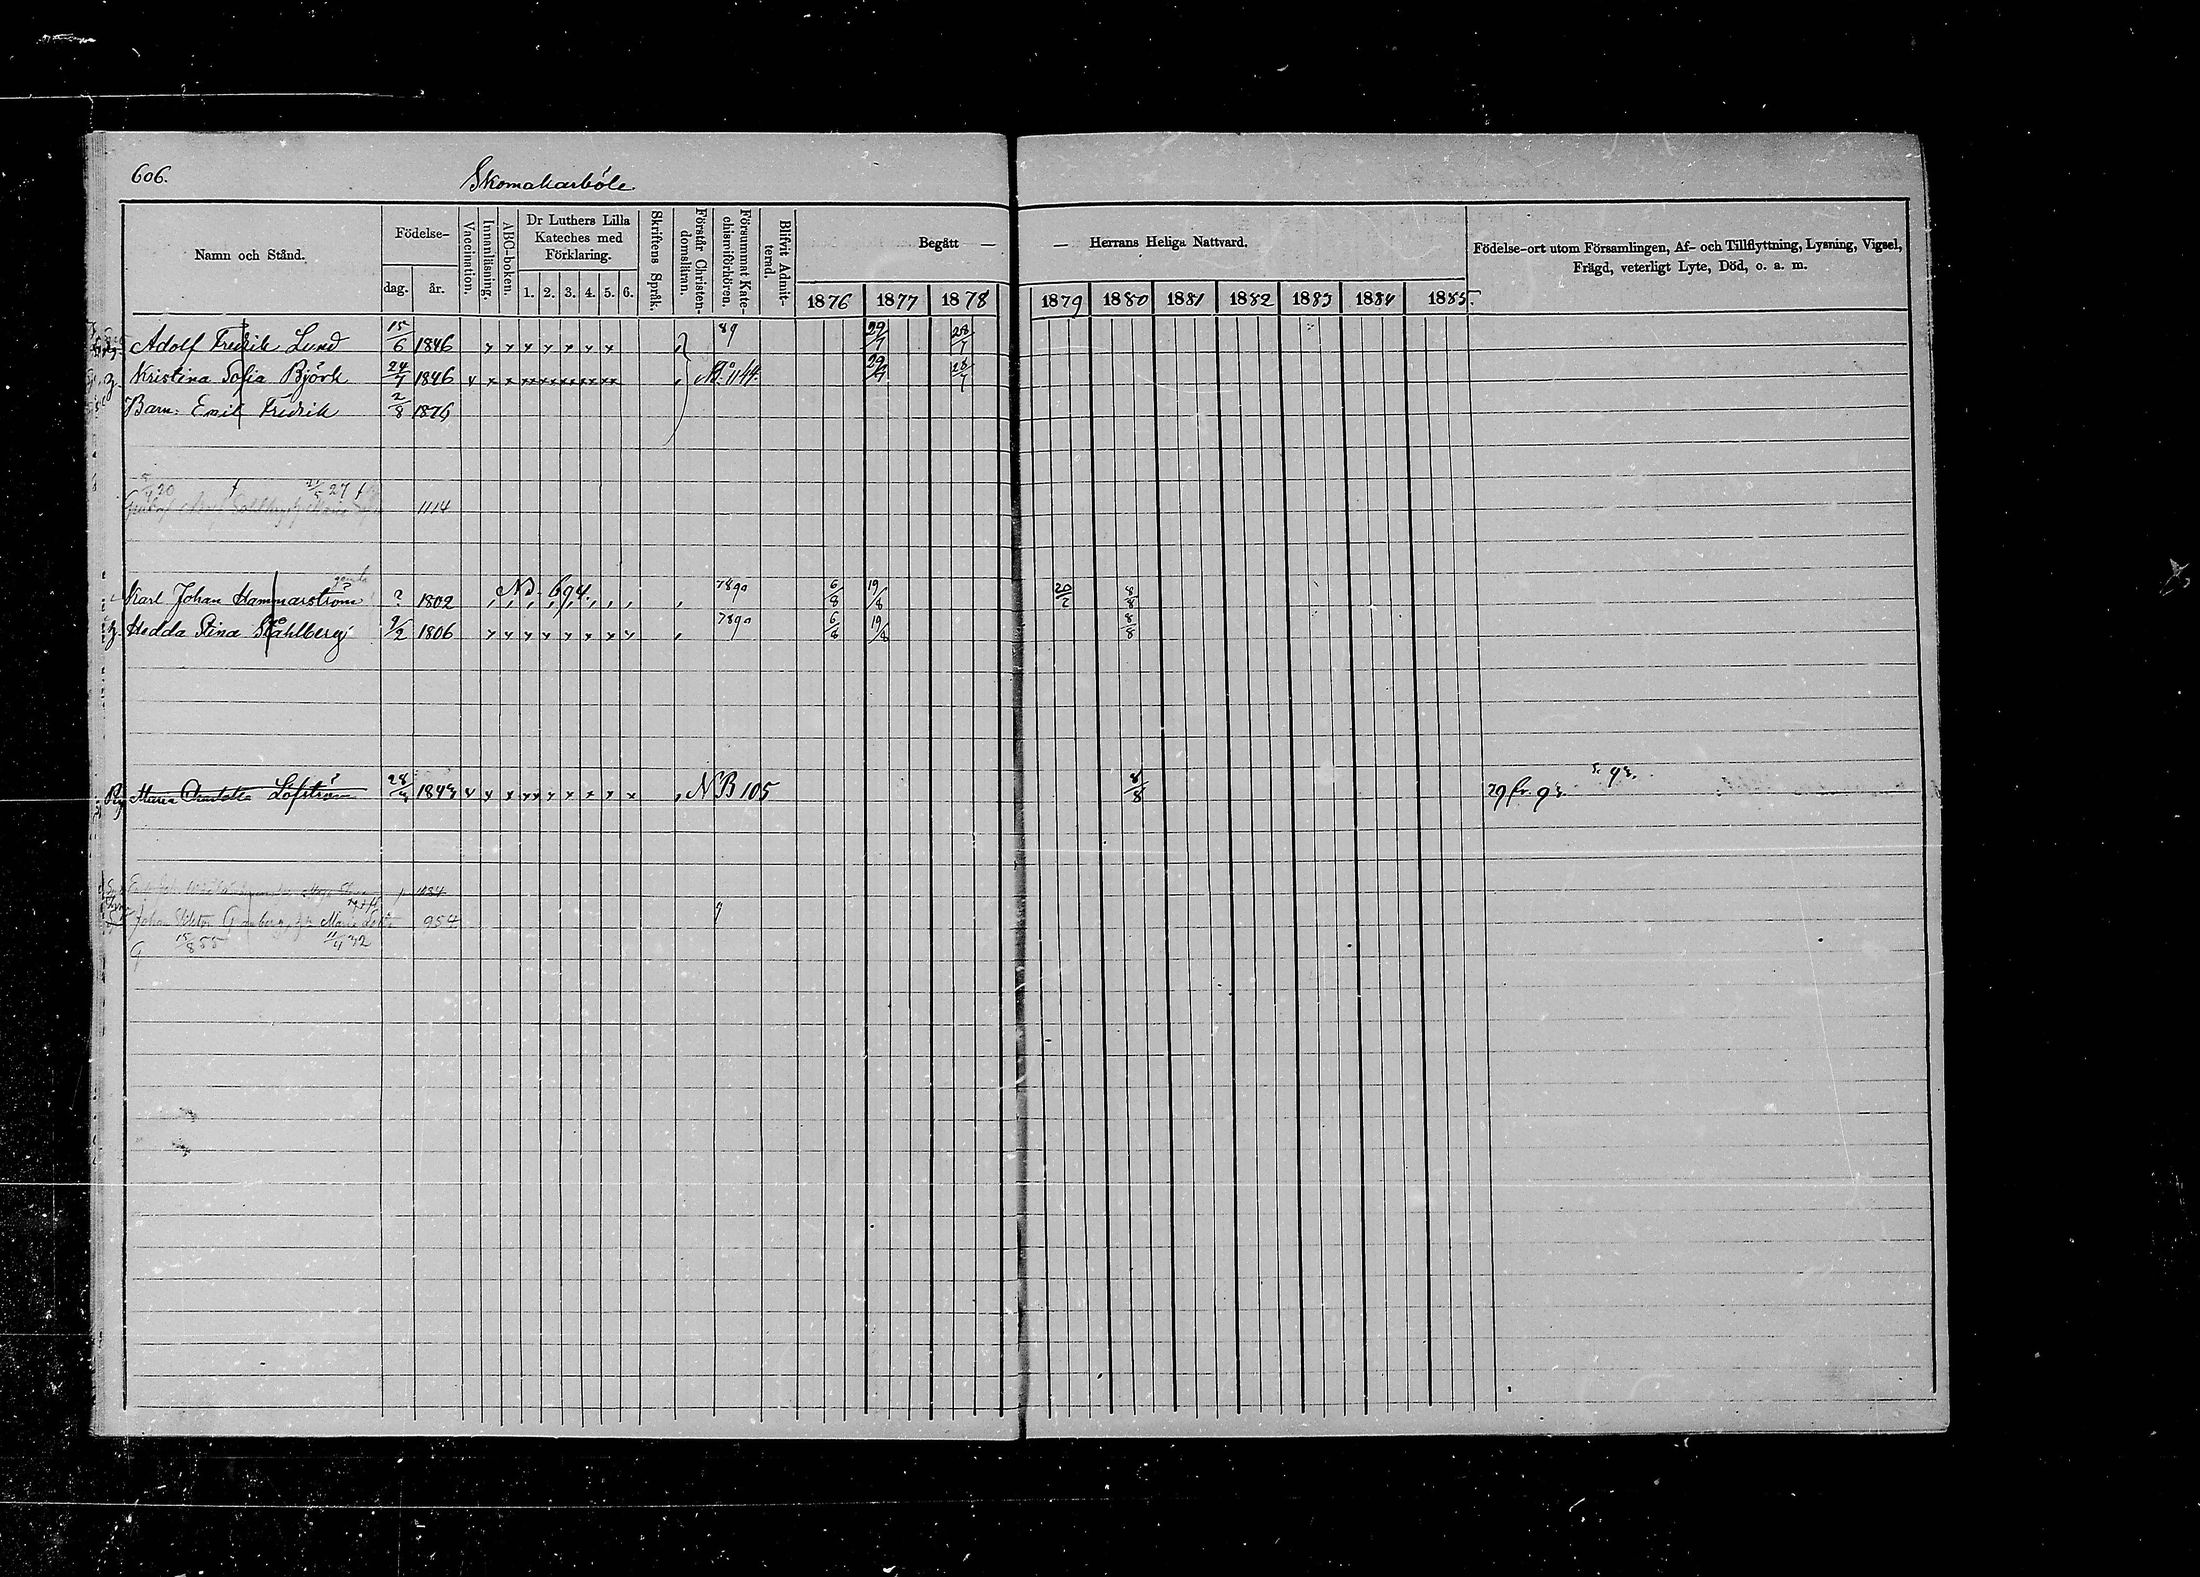 606.
Skomakarböle
Namn och Stånd.
Födelse-
dag. år.
Vaccination.
Innanläsning.
ABC-boken.
Dr Luthers Lilla
Kateches med
Förklaring.
1. 2. 3. 4. 5. 6.
Skriftens Språk.
Förstår Christen-
domsläran.
Försummat Kate-
chismiförhören.
Blifvit Admit-
terad.
Begått —
1876 1877 1878
— Herrans Heliga Nattvard.
1879 1880 1881 1882 1883 1884 1885.
Födelse-ort utom Församlingen, Af- och Tillflyttning, Lysning, Vigsel,
Frägd, veterligt Lyte, Död, o. a. m.
Adolf Fredrik Lund 15/6 1846 89 29/7 28/7
Kristina Sofia Björk 24/7 1846 1144. 29/7 28/7
Barn: Emil Fredrik 2/8 1876
5/4 20 27
1114
Karl Johan Hammarström ? 1802 NB 694. 7890 6/8 19/8 20/2 8/8
Hedda Stina Ståhlberg 9/2 1806 7890 6/8 19/8 8/8
Maria Charlotta Löfström 1843 NB 105 8/8 79 fr. 92.
1084
Johan Viktor Granberg, Maria 954
15/8 55 11/4 32